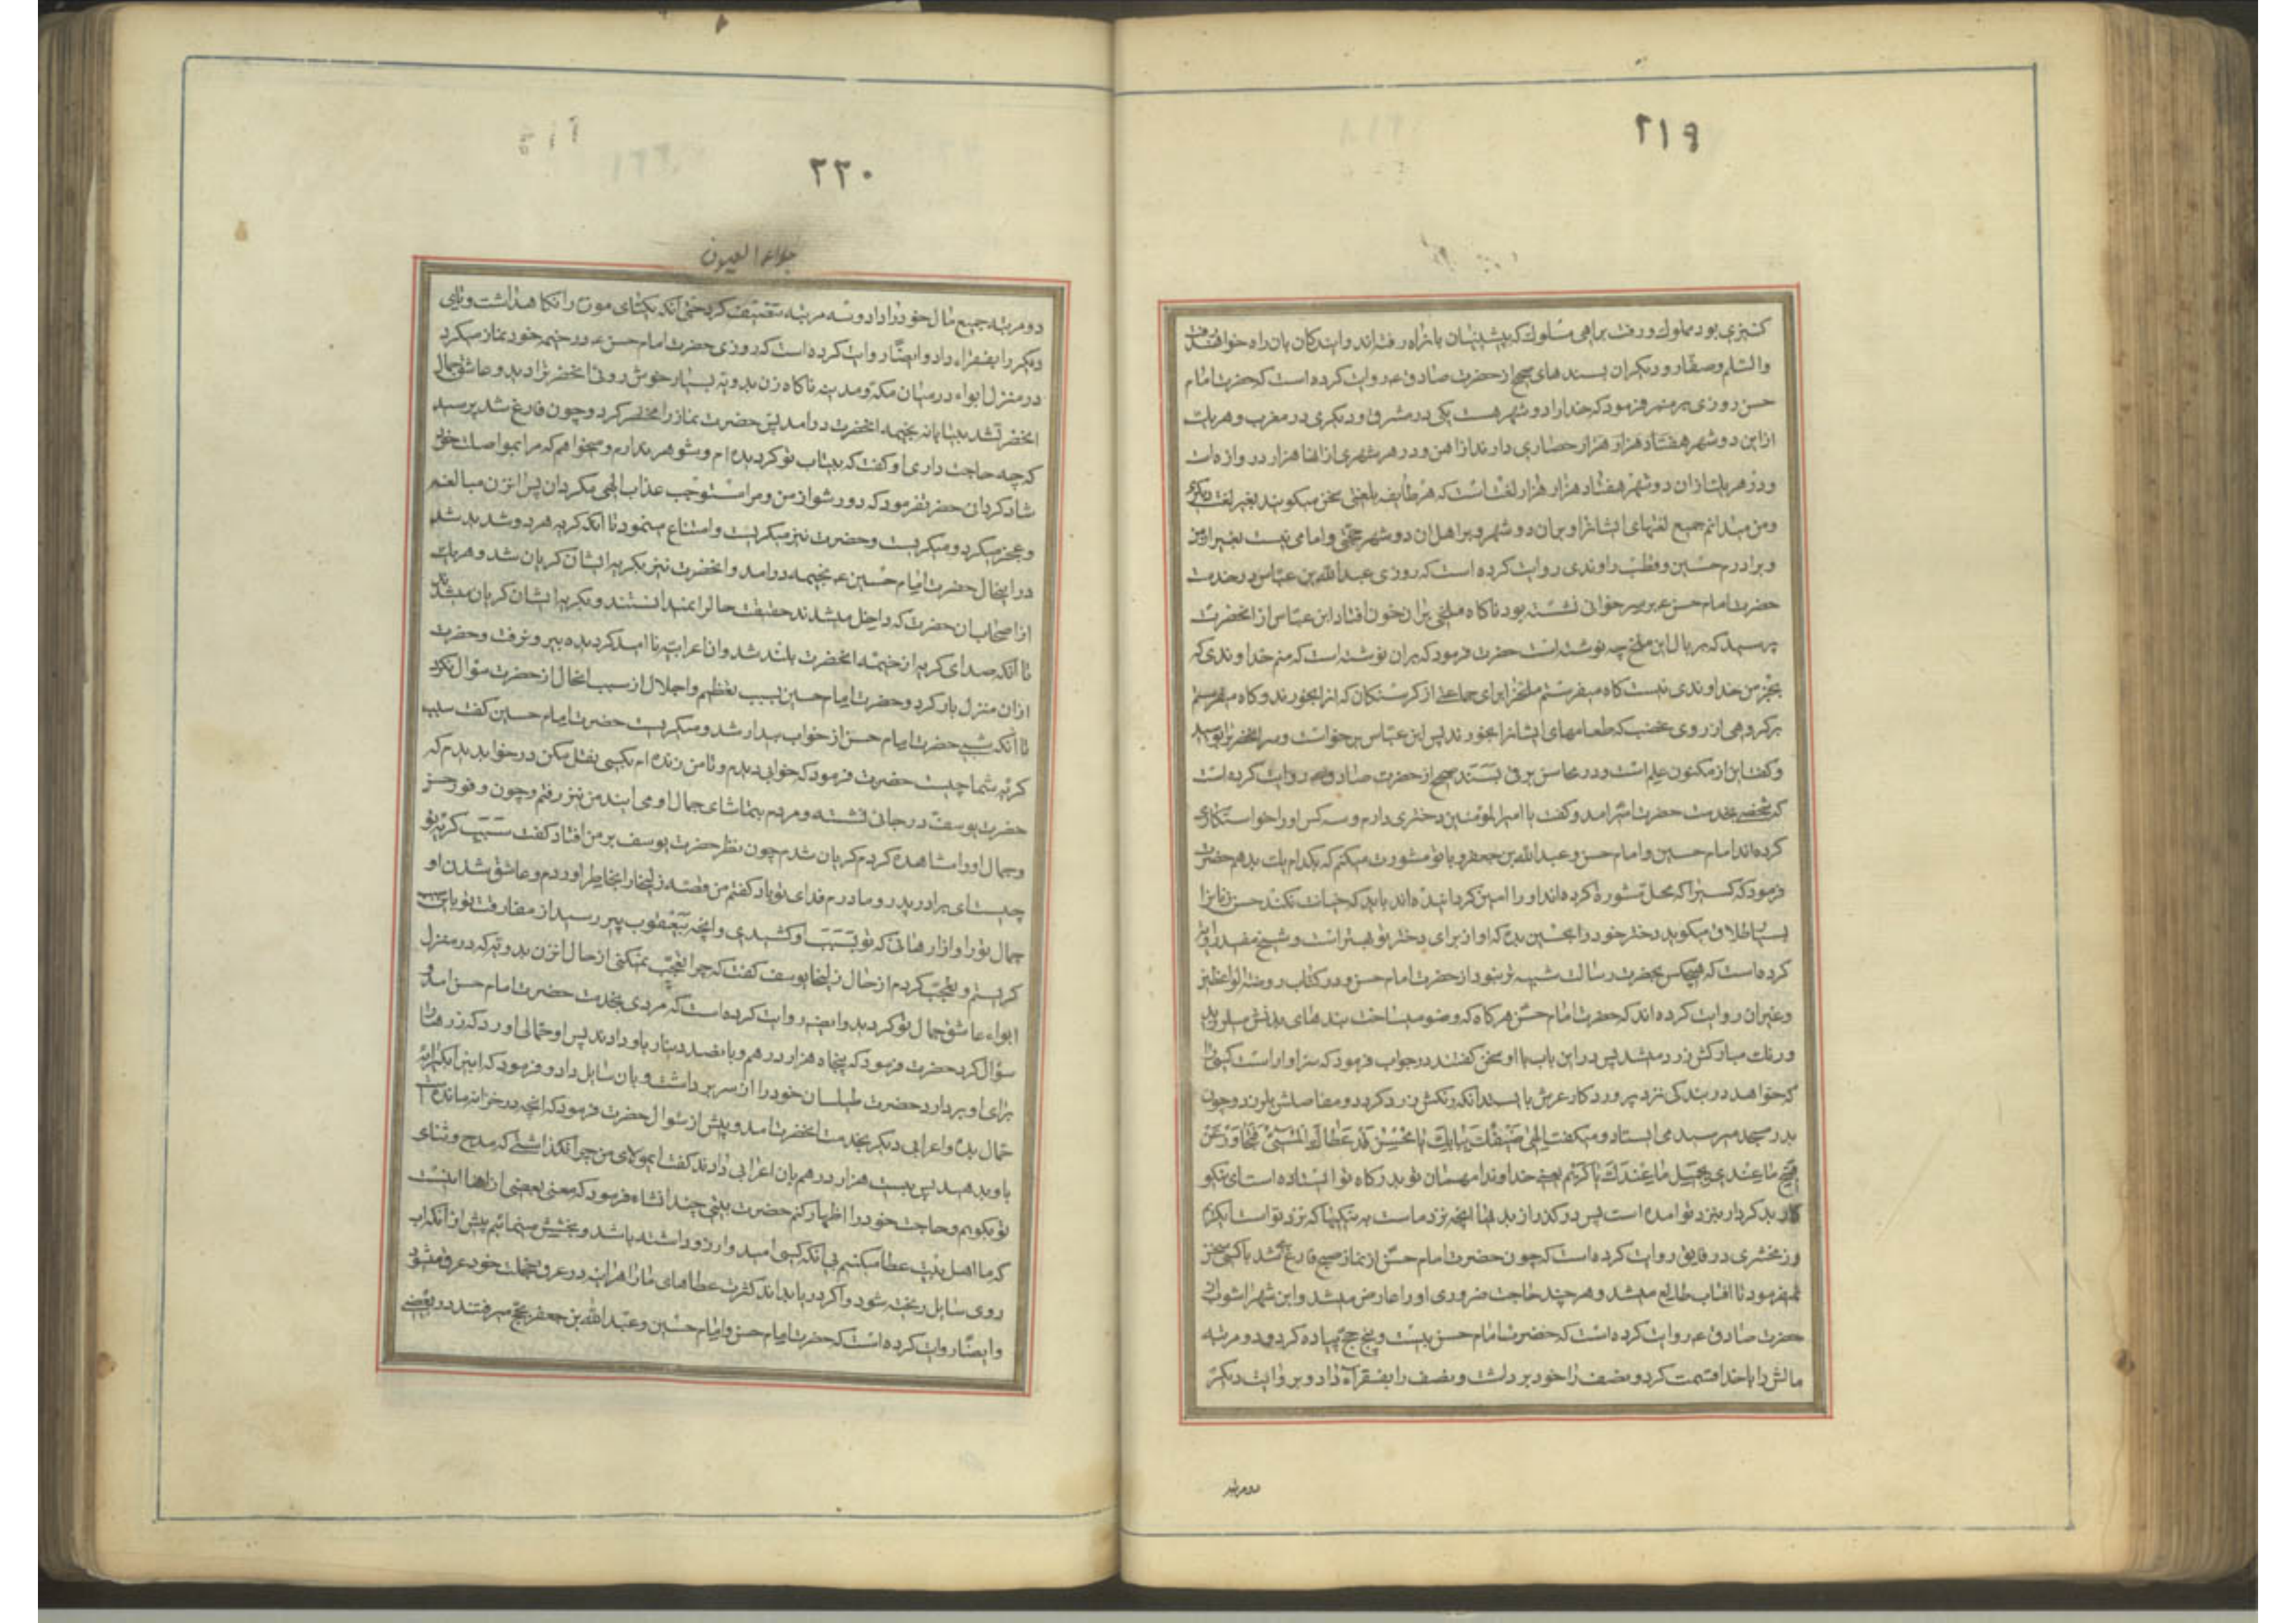 ٢١٩
کنیزی بود مملوک و رفت براهی مسلوک که پیشینیان بانراه رفته‌اند و ایندکان بان راه خواهند رفت
والسّلم و صفّار و دیکران بسندهای صحیح از حضرت صادق ع روایت کرده است که حضرت امام
حسن روزی بر منبر فرمود که خدا را دو شهر هست یکی در مشرق و دیکری در مغرب و هر یک
از این دو شهر هفتاد هزار هزار حصاری دارند از اهن و در هر شهری از انها هزار دروازه است
و در هر یک از ان دو شهر هفتاد هزار هزار لغت است که هر طایفه بلغتی سخن میکویند بغیر لغت دیکری
و من میدانم جمیع لغتهای ایشانرا و بران دو شهر و بر اهل ان دو شهر حجّتی و امامی نیست بغیر از من
و برادرم حسین و قطب راوندی روایت کرده است که روزی عبد الله بن عبّاس در خدمت
حضرت امام حسن ع بر سر خوانی نشسته بود ناکاه ملخی بران خوان افتاد ابن عبّاس از انحضرت
پرسید که بر بال این ملخ چه نوشته است حضرت فرمود که بران نوشته است که منم خداوندی که
بجز من خداوندی نیست کاه میفرستم ملخرا برای جماعتی از کرسنکان که انرا بخورند و کاه میفرستم
بر کروهی از روی غضب که طعامهای ایشانرا بخورند پس ابن عبّاس برخواست و سر انحضرترا بوسید
و کفت این از مکنون علم است و در محاسن برقی بسند صحیح از حضرت صادق ع روایت کرده است
که شخصی بخدمت حضرت امیر امد و کفت یا امیر المؤمنین دختری دارم و سه کس او را خواستکاری
کرده‌اند امام حسین و امام حسن و عبد الله بن جعفر و با تو مشورت میکنم که بکدام یک بدهم حضرت
فرمود که کسیرا که محل مشوره کرده‌اند او را امین کردانیده‌اند باید که خیانت نکند حسن زنانرا
بسیار طلاق میکوید دختر خود را بحسین بده که او از برای دختر تو بهتر است و شیخ مفید روایت
کرده است که هیچکس بحضرت رسالت شبیه‌تر نبود از حضرت امام حسن و در کتاب روضة الواعظین
و غیر ان روایت کرده‌اند که حضرت امام حسن هر کاه که وضو میساخت بندهای بدنش میلرزید
و رنک مبارکش زرد میشد پس در این باب با او سخن کفتند در جواب فرمود که سزاوار است کسی را
که خواهد در بندکی نزد پروردکار عرش بایستد انکه رنکش زرد کردد و مفاصلش بلرزد و چون
بدر مسجد میرسید می ایستاد و میکفت الهی ضیفک ببابک یا محسن قد اتاک المسیئ فتجاوز عن
قبیح ما عندی بجمیل ما عندک یا کریم یعنی خداوندا مهمان تو بدرکاه تو ایستاده است ای نیکو
کار بدکردار بنزد تو امده است پس در کذر از بدیها انچه نزد ما است به نیکیها که نزد تو است ایکریم
و زمخشری در فایق روایت کرده است که چون حضرت امام حسن از نماز صبح فارغ میشد با کسی سخن
نمیفرمود تا افتاب طالع میشد و هر چند حاجت ضروری او را عارض میشد و ابن شهر اشوب از
حضرت صادق ع روایت کرده است که حضرت امام حسن بیست و پنج حجّ پیاده کرد و دو مرتبه
مالش را با خدا قسمت کرد و نصف را خود برداشت و نصف را بفقرآء داد و بروایت دیکر
دو مرتبه
٢٢٠
جلاء العیون
دو مرتبه جمیع مال خود را داد و سه مرتبه تنصیف کرد حتّی انکه یکتای موزه را نکاه داشت و تای
دیکر را بفقراء داد و ایضاً روایت کرده است که روزی حضرت امام حسن ع در خیمه خود نماز میکرد
در منزل ابواء در میان مکه و مدینه ناکاه زن بدویه بسیار خوش روئی انحضرترا دید و عاشق جمال
انحضرت شد بیتابانه بخیمه انحضرت در امد پس حضرت نماز را مختصر کرد و چون فارغ شد پرسید
که چه حاجت داری او کفت که بیتاب تو کردیده‌ام و شوهر ندارم و میخواهم که مرا بمواصلت خود
شاد کردانی حضرت فرمود که دور شو از من و مرا مستوجب عذاب الهی مکردان پس انزن مبالغه
و عجز میکرد و میکریست و حضرت نیز میکریست و امتناع مینمود تا انکه کریه هر دو شدید شد
در اینحال حضرت امام حسین ع بخیمه در امد و انحضرت نیز بکریه ایشان کریان شد و هر یک
از اصحاب ان حضرت که داخل میشدند حقیقت حال را نمیدانستند و بکریه ایشان کریان میشدند
تا انکه صدای کریه از خیمه انحضرت بلند شد و ان اعرابیّه نا امید کردیده بیرون رفت و حضرت
از ان منزل بار کرد و حضرت امام حسین بسبب تعظیم و اجلال از سبب انحال از حضرت سؤال نکرد
تا انکه شبی حضرت امام حسن از خواب بیدار شد و میکریست حضرت امام حسین کفت سبب
کریه شما چیست حضرت فرمود که خوابی دیدم و تا من زنده‌ام بکسی نقل مکن در خواب دیدم که
حضرت یوسف در جائی نشسته و مردم بتماشای جمال او می ایند من نیز رفتم و چون وفور حسن
و جمال او را مشاهده کردم کریان شدم چون نظر حضرت یوسف بر من افتاد کفت سبب کریه تو
چیست ای برادر پدر و مادرم فدای تو باد کفتم من قصّه زلیخا را بخاطر اوردم و عاشق شدن او
جمال تو را و ازارهائی که تو بسبب او کشیدی و انچه بیعقوب پیر رسید از مفارقت تو باین سبب
کریستم و تعجّب کردم از حال زلیخا یوسف کفت که چرا تعجّب نمیکنی از حال انزن بدویّه که در منزل
ابواء عاشق جمال تو کردید و ایضاً روایت کرده است که مردی بخدمت حضرت امام حسن امد و
سؤال کرد حضرت فرمود که پنجاه هزار درهم و پانصد دینار باو دادند پس او حمّالی اورد که زرها را
برای او بردارد حضرت طیلسان خود را از سر برداشت و بان سایل داد و فرمود که این را بکرایه
حمّال بده و اعرابی دیکر بخدمت انحضرت امد و پیش از سؤال حضرت فرمود که انچه در خزانه مانده است
باو بدهید پس بیست هزار درهم بان اعرابی دادند کفت ایمولای من چرا نکذاشتی که مدح و ثنای
تو بکویم و حاجت خود را اظهار کنم حضرت بیتی چند انشاء فرمود که معنی بعضی از انها اینست
که ما اهل بیت عطا میکنیم بی انکه کسی امید و ارزو داشته باشد و بخشش مینمائیم پیش از انکه اب
روی سایل ریخته شود و اکر دریا بداند کثرت عطاهای ما را هراینه در عرق خجلت خود غرق میشود
و ایضاً روایت کرده است که حضرت امام حسن و امام حسین و عبد الله بن جعفر بحجّ میرفتند در بعضی